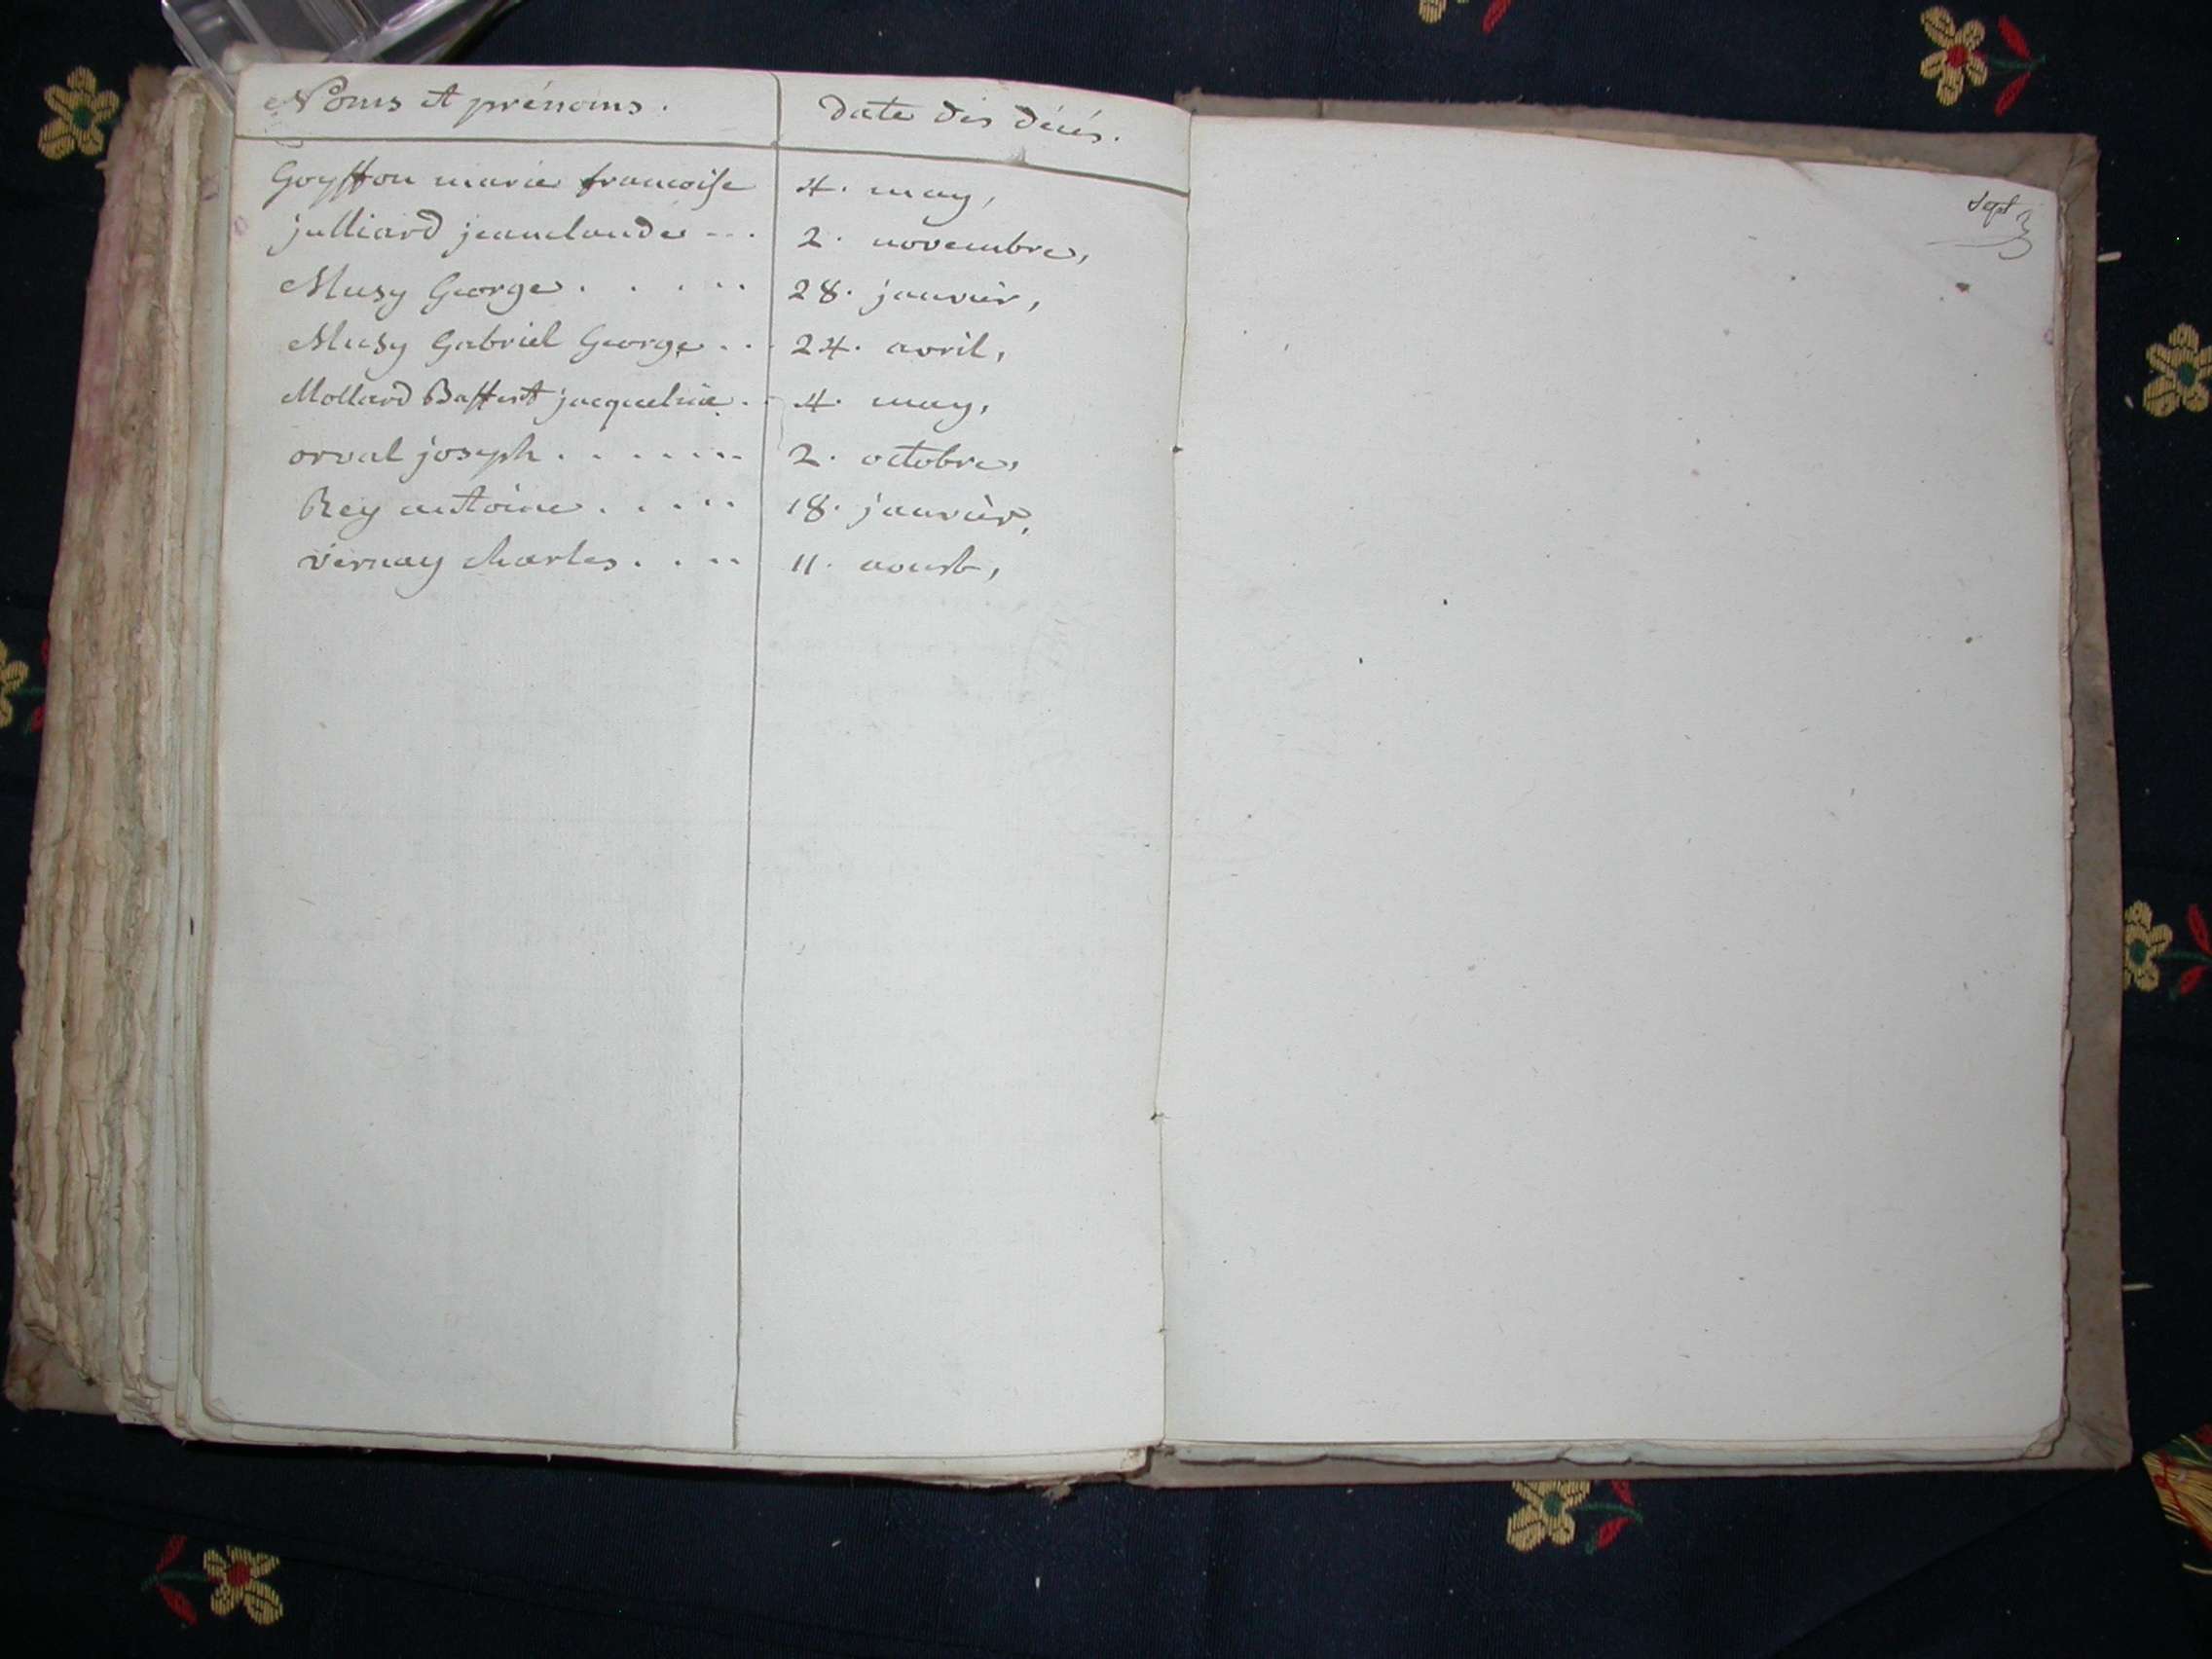 Noms et prénoms. date des décés.
Goyffon marie francoise 4. may,
julliard jeanclaude --. 2. novembre,
Musy George. . . . .. 28. janvier,
Musy Gabriel George. .. 24. avril,
Mollard Baffert jacqueline. . 4. may,
orval joseph . . . . . .. 2. octobre,
Rey antoine . . . .. 18. janvier,
vernay charles. . .. 11. aoust,
sept